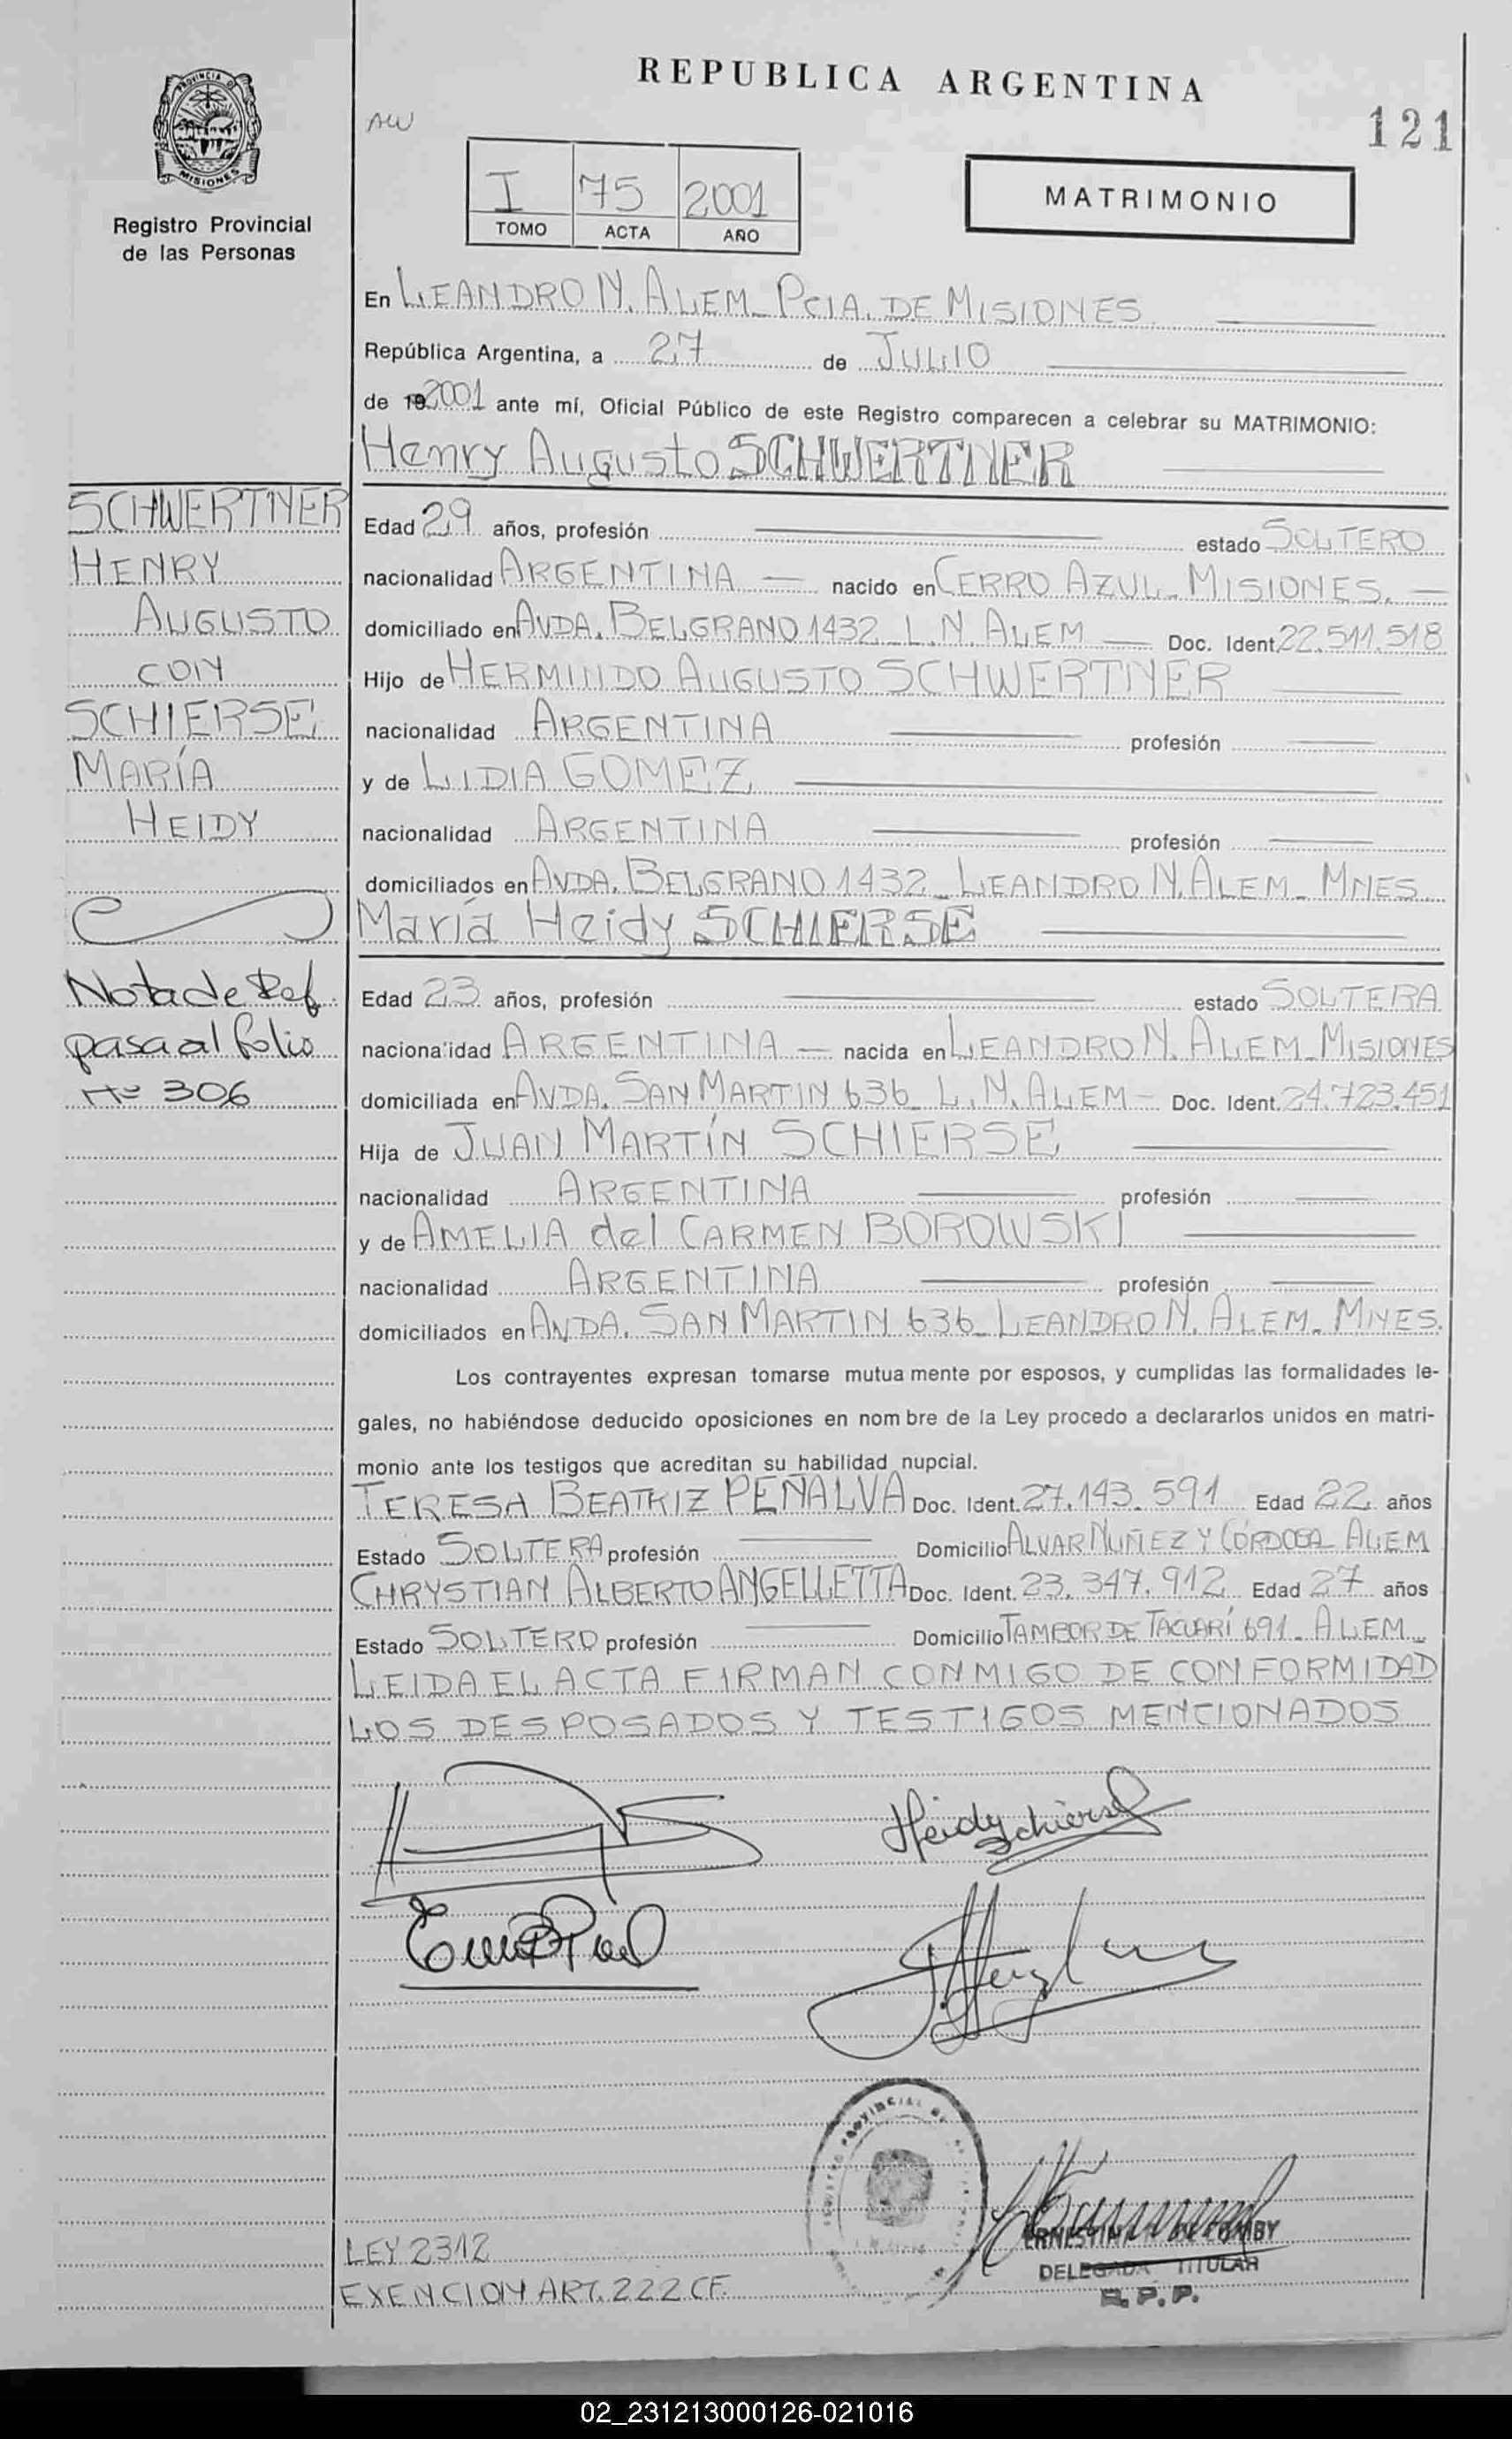 REPUBLICA ARGENTINA
121
PROVINCIA DE
MISIONES
Registro Provincial
de las Personas
AW
I 75 2001
TOMO ACTA AÑO
MATRIMONIO
En LEANDRO N. ALEM - PCIA. DE MISIONES
República Argentina, a 27 de JULIO
de 19 2001 ante mí, Oficial Público de este Registro comparecen a celebrar su MATRIMONIO:
Henry Augusto SCHWERTNER
SCHWERTNER
HENRY
AUGUSTO
CON
SCHIERSE,
MARÍA
HEIDY
Nota de Ref.
pasa al folio
Nº 306
Edad 29 años, profesión estado SOLTERO
nacionalidad ARGENTINA — nacido en CERRO AZUL - MISIONES. —
domiciliado en AVDA. BELGRANO 1432 - L.N. ALEM — Doc. Ident. 22.511.518
Hijo de HERMINDO AUGUSTO SCHWERTNER
nacionalidad ARGENTINA profesión
y de LIDIA GOMEZ
nacionalidad ARGENTINA profesión
domiciliados en AVDA. BELGRANO 1432 - LEANDRO N. ALEM - MNES.
María Heidy SCHIERSE
Edad 23 años, profesión estado SOLTERA
nacionalidad ARGENTINA — nacida en LEANDRO N. ALEM - MISIONES
domiciliada en AVDA. SAN MARTIN 636 - L.N. ALEM - Doc. Ident. 24.723.451
Hija de JUAN MARTÍN SCHIERSE
nacionalidad ARGENTINA profesión
y de AMELIA del CARMEN BOROWSKI
nacionalidad ARGENTINA profesión
domiciliados en AVDA. SAN MARTIN 636 - LEANDRO N. ALEM - MNES.
Los contrayentes expresan tomarse mutua mente por esposos, y cumplidas las formalidades le-
gales, no habiéndose deducido oposiciones en nom bre de la Ley procedo a declararlos unidos en matri-
monio ante los testigos que acreditan su habilidad nupcial.
TERESA BEATRIZ PEÑALVA Doc. Ident. 27.143.591 Edad 22 años
Estado SOLTERA profesión Domicilio ALVAR NUÑEZ Y CÓRDOBA - ALEM
CHRYSTIAN ALBERTO ANGELLETTA Doc. Ident. 23.347.912 Edad 27 años
Estado SOLTERO profesión Domicilio TAMBOR DE TACUARÍ 691 - ALEM -
LEIDA EL ACTA FIRMAN CONMIGO DE CONFORMIDAD
LOS DESPOSADOS Y TESTIGOS MENCIONADOS
Heidy Schierse
PROVINCIAL DE
DELEGADA TITULAR
R. P. P.
LEY 2312
EXENCION ART. 222 CF.
02_231213000126-021016